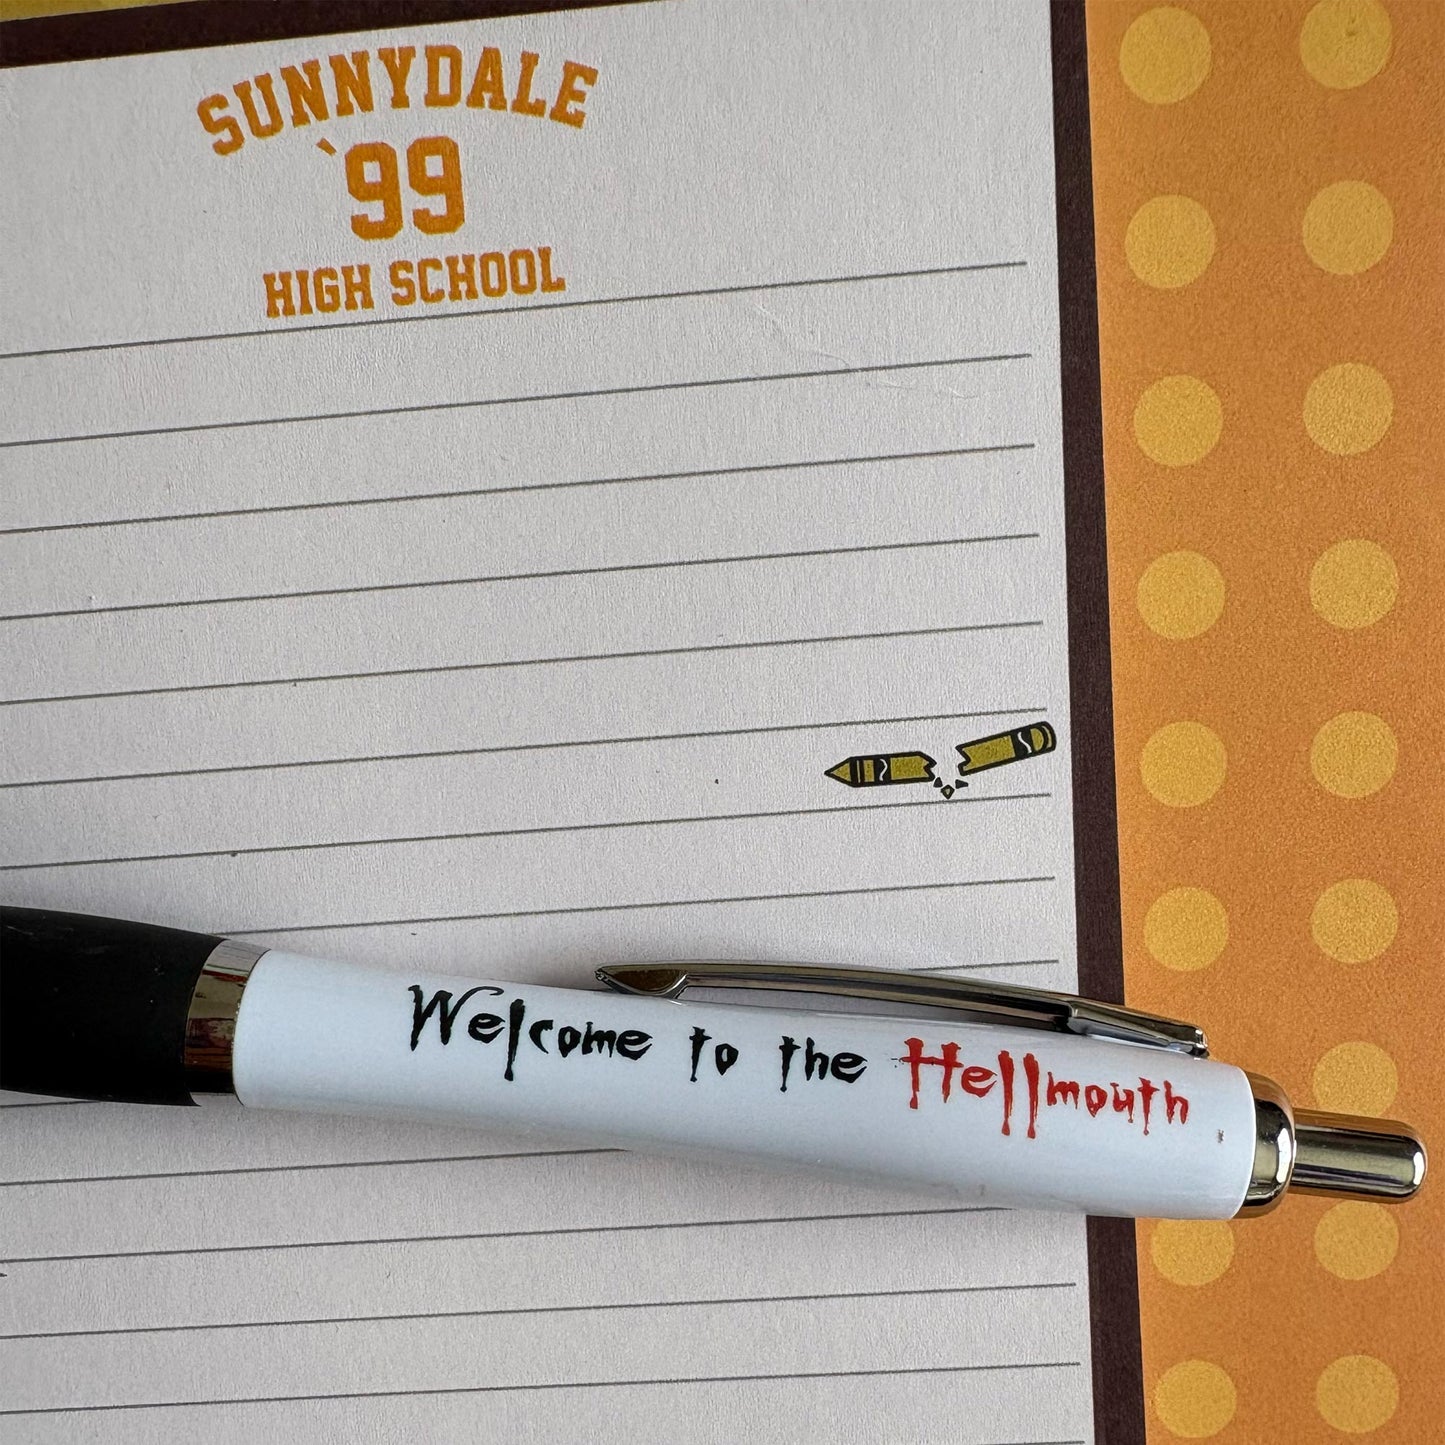 SUNNYDALE
`99
HIGH SCHOOL
Welcome to the Hellmouth